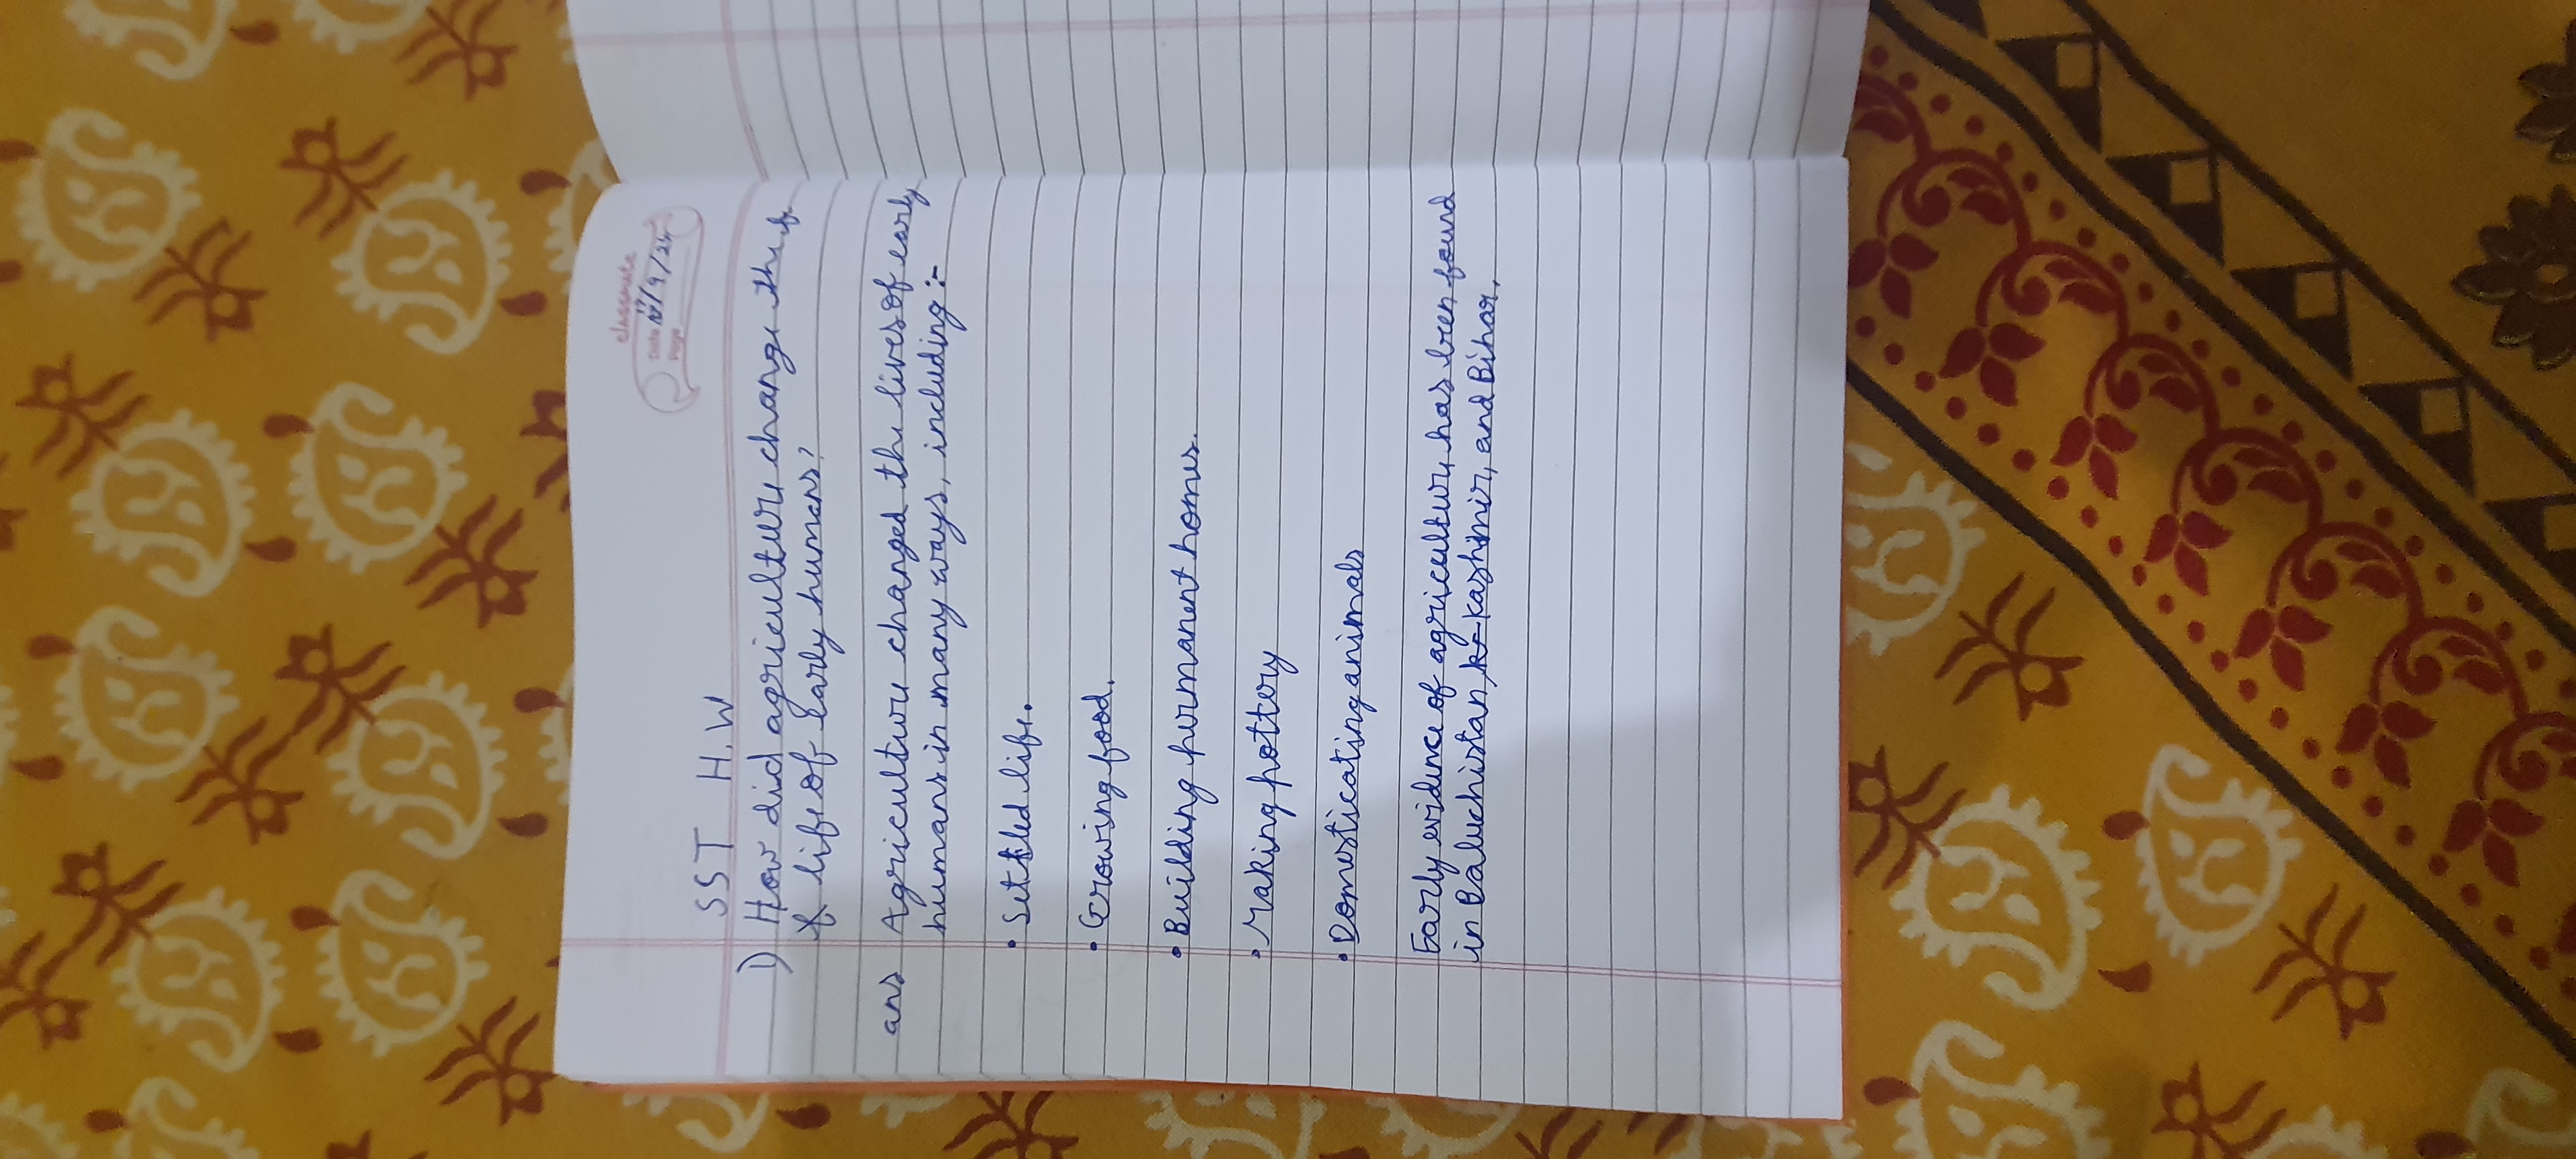 classmate
Date 17/9/24
Page
SST H.W
1) How did agriculture change the
life of early humans?
ans Agriculture changed the lives of early
humans in many ways, including :-
• Settled life.
• Growing food.
• Building permanent homes.
• Making pottery
• Domesticating animals
Early evidence of agriculture has been found
in Baluchistan, Kashmir, and Bihar.